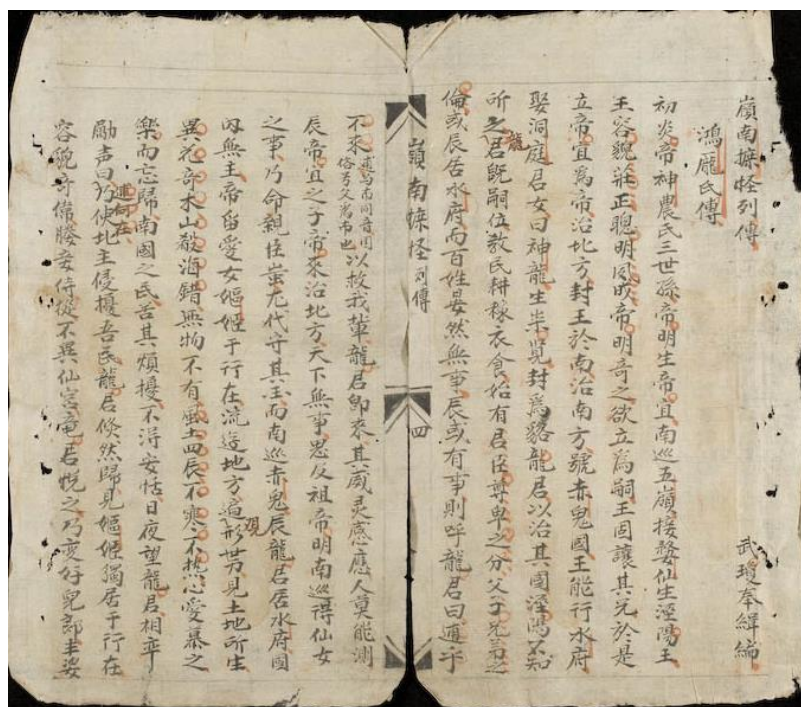 嶺南摭怪列傳
武瓊奉緝編
鴻龐氏傳
初炎帝神農氏三世孫帝明生帝宜南巡五嶺接婺仙生涇陽王
王容貌莊正聰明夙成帝明奇之欲立為嗣王固讓其兄於是
立帝宜爲帝治北方封王於南治南方號赤鬼國王能行水府
娶洞庭君女曰神龍生崇覽封爲貉龍君以治其國涇陽不知
所之龍君既嗣位教民耕稼衣食始有君臣尊卑之分父子兄弟之
倫或辰居水府而百姓晏然無事辰或有事則呼龍君曰逋乎
嶺南摭怪列傳
四
不來以救我輩龍君即來其威灵感應人莫能測
俗号父為布也
辰帝宜之子帝來治北方天下無事思及祖帝明南巡得仙女
之事乃命親臣蚩尤代守其国而南巡赤鬼辰龍君居水府國
内無主帝留愛女嫗姬于行在流遊地方遍观形势見土地所生
異花奇木山殽海錯無物不有風土四辰不寒不热心愛慕之
樂而忘歸南國之民苦其煩擾不得安恬日夜望龍君相率
勵声曰逋何在乃使北主侵擾吾民龍君倏然歸見嫗姬獨居于行在
容貌奇偉媵妾侍從不異仙宮竜君悦之乃变好兒郎丰姿